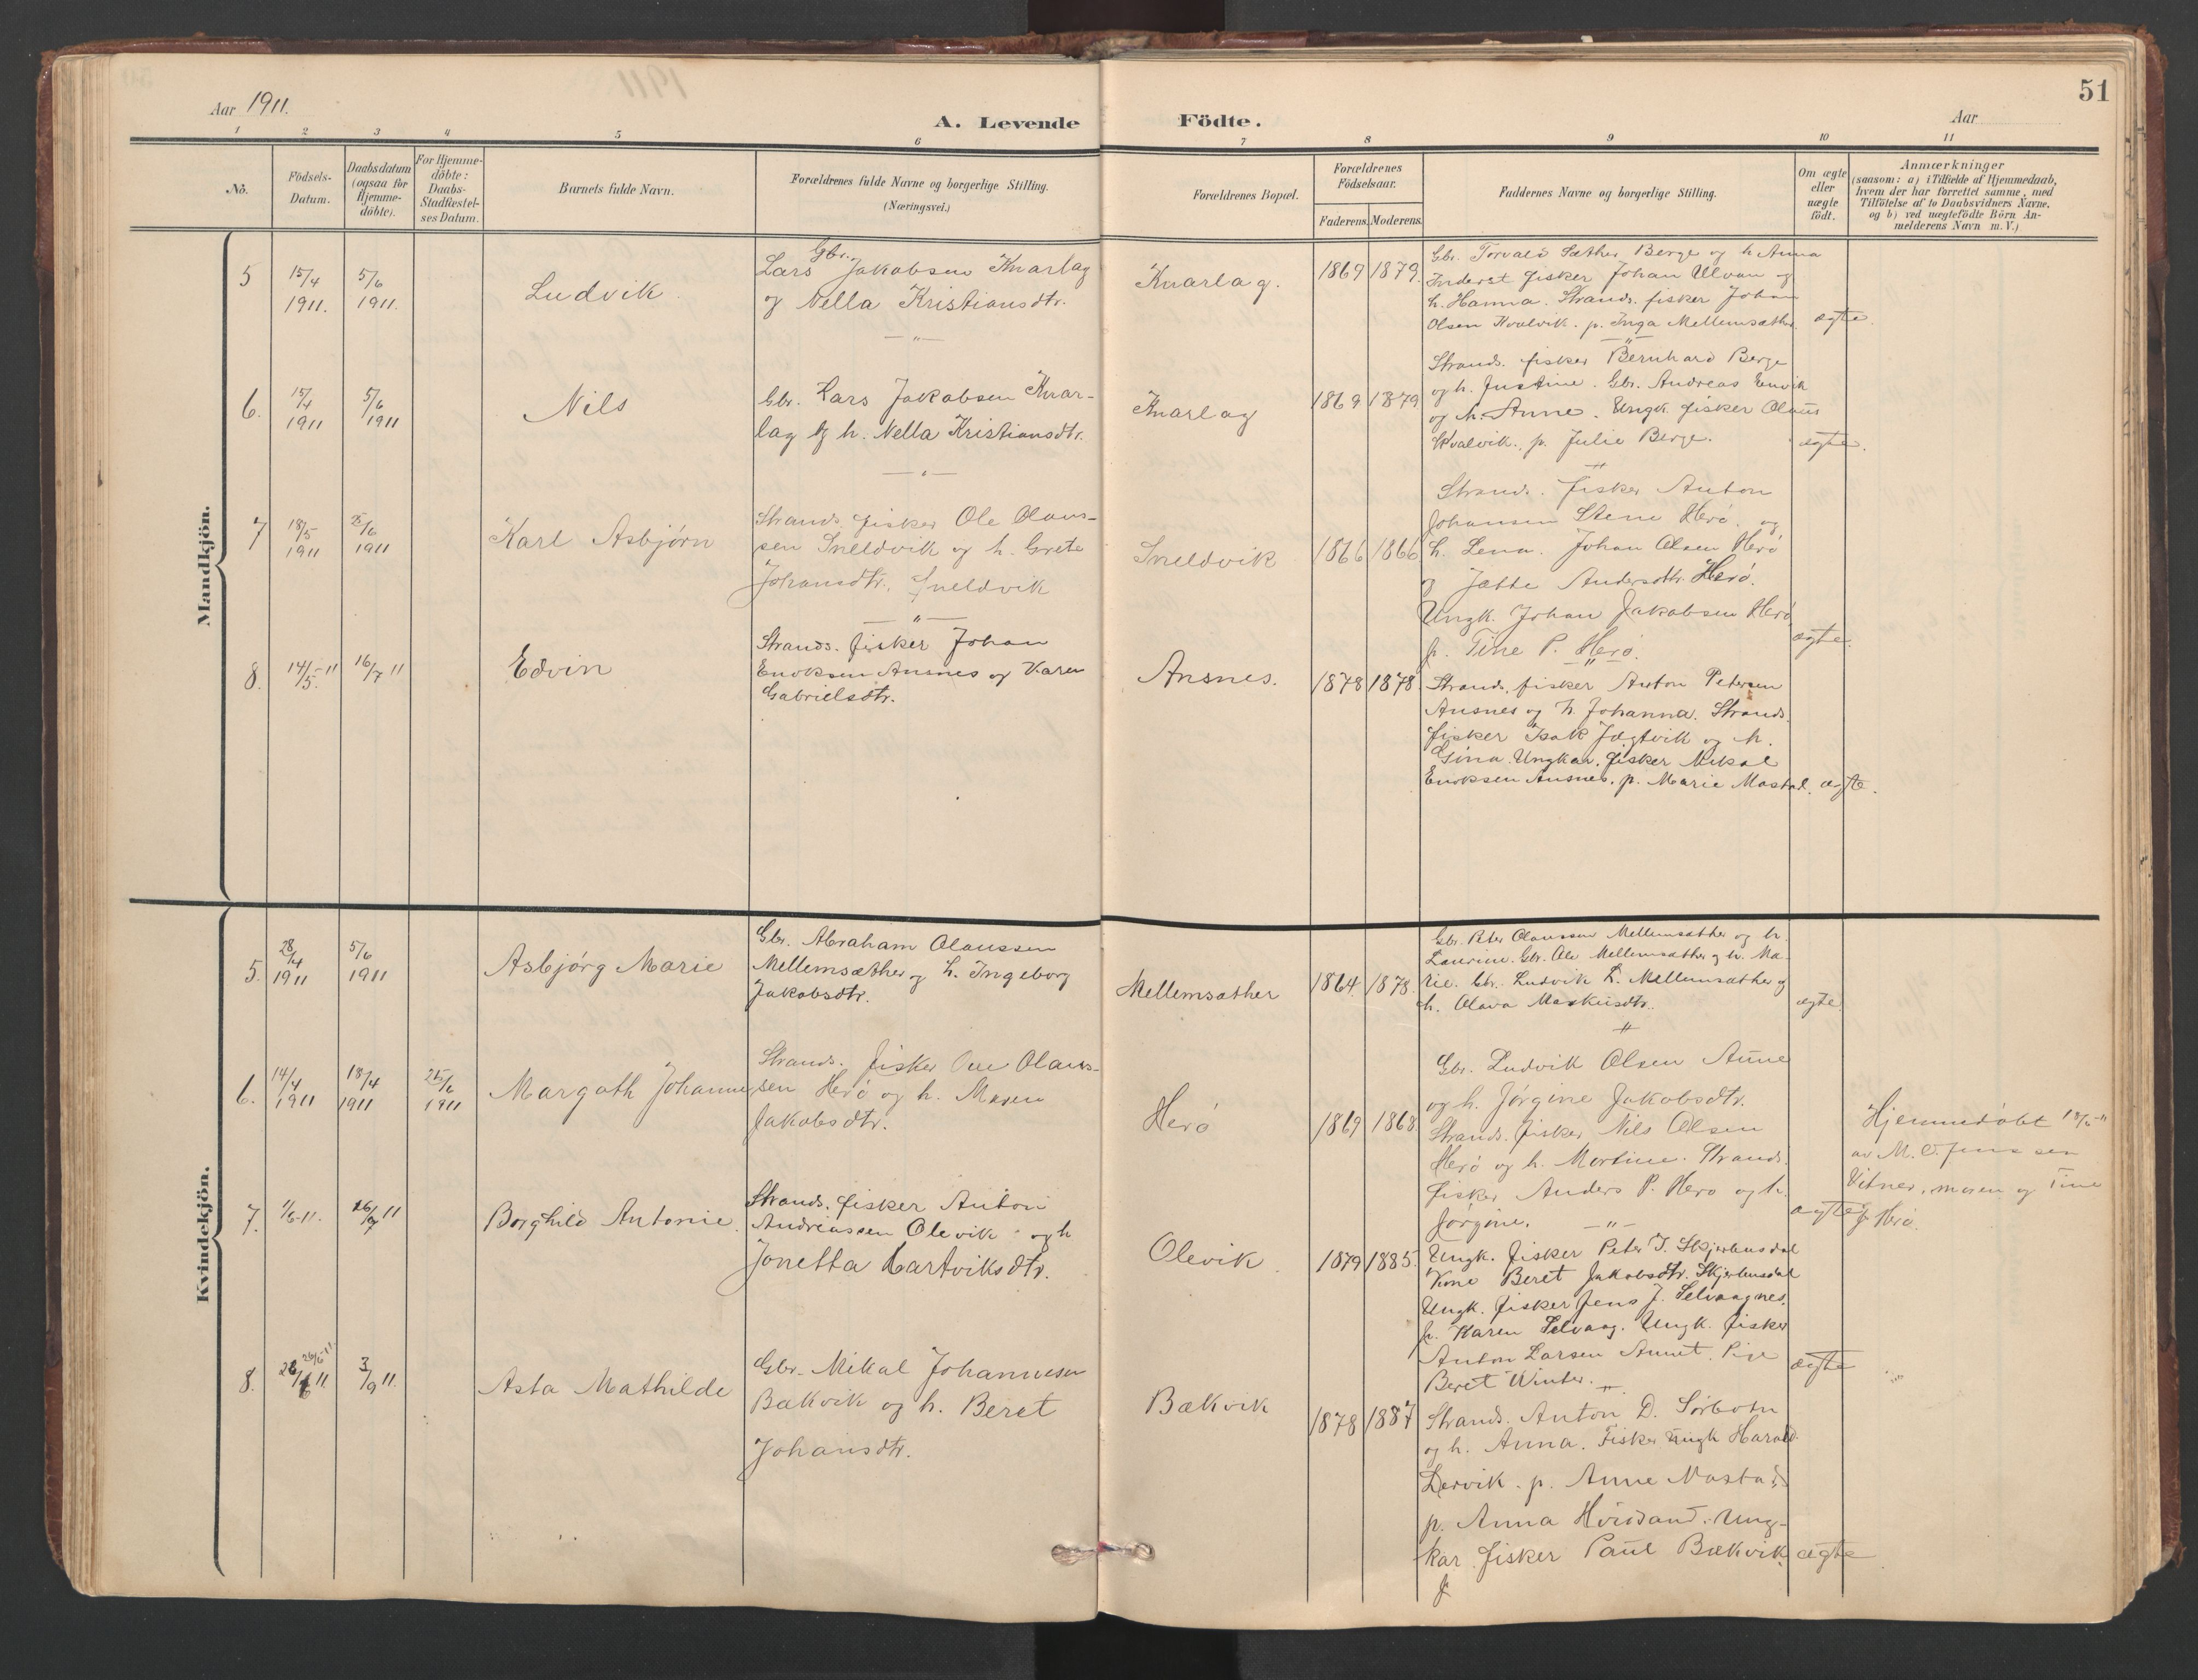 Aar 1911.
A. Levende
Födte.
Aar
51
1 2 3 4 5 6 7 8 9 10 11
Nö.
Födsels-Datum.
Daabsdatum (ogsaa for Hjemme-döbte).
For Hjemme-döbte: Daabs-Stadfæstel-ses Datum.
Barnets fulde Navn.
Forældrenes fulde Navne og borgerlige Stilling.
(Næringsvei.)
Forældrenes Bopæl.
Forældrenes Födselsaar.
Faderens. Moderens.
Faddernes Navne og borgerlige Stilling.
Om ægte eller uægte födt.
Anmærkninger
(saasom: a) i Tilfælde af Hjemmedaab,
hvem der har forrettet samme, med
Tilföielse af to Daabsvidners Navne,
og b) ved uægtefödte Börn An-
melderens Navn m. V.)
Mandkjön.
5
15/4 1911.
5/6 1911.
Ludvik
Gbr.
Lars Jakobsen Knarlag
og Nella Kristiansdtr.
Knarlag.
1869 1879.
Gbr. Torvald Sæther Berge og h Anna
Inderst fisker Johan Ulvan og
h. Hanna. Strands. fisker Johan
Olsen Kvalvik. p. Inga Mellemsæther
ægte.
6.
15/4 1911
5/6 1911
Nils
Gbr. Lars Jakobsen Knar-
lag og h. Nella Kristiansdtr.
Knarlag
1869 1879
Strands. fisker Bernhard Berge
og h. Justine. Gbr. Andreas
og h. Anne. Ungk. fisker Olaus
Kvalvik. p. Julie Berge.
ægte.
7
18/5 1911
25/6 1911
Karl Asbjørn
Strands. fisker Ole Olaus-
sen Sneldvik og h. Grete
Johansdtr. Sneldvik
Sneldvik
1866 1866
Strands. fisker Anton
Johansen Stene Herø. og
h. Lena. Johan Olsen Herø
og Andersdtr. Herø.
Ungk. Johan Jakobsen Herø
p. Tine P. Herø.
ægte.
8.
14/5-11
16/7 11
Edvin
Strands. fisker Johan
Enoksen Ansnes og Karen
Gabrielsdtr.
Ansnes.
1878 1878.
Strands. fisker Anton Petersen
Ansnes og h. Johanna. Strands.
fisker Isak Jægtvik og h.
Gina. Ungkar. fisker Mikal
Enoksen Ansnes. p. Marie Mastad.
ægte.
Kvindekjön.
5.
28/4 1911
5/6 1911
Asbjørg Marie
Gbr. Abraham Olaussen
Mellemsæther og h. Ingeborg
Jakobsdtr.
Mellemsæther
1864. 1878.
Gbr. Peter Olaussen Mellemsæther og h.
Laurine. Gbr. Ole Mellemsæther og h. Ma-
rie. Gbr. Ludvik L. Mellemsæther og
h. Olava
ægte
6.
14/4 1911
18/4 1911
25/6 1911
Margoth Johanne
Strands. fisker Olaus-
sen Herø og h. Maren
Jakobsdtr.
Herø
1869 1868
Gbr. Ludvik Olsen Aune
og h. Jørgine Jakobsdtr.
Strands. fisker Nils Olsen
Herø og h. Martine. Strands.
fisker Anders P. Herø og h.
Jørgine.
ægte
Hjemmedøbt
av M. O. Jenssen
Vitner, Maren og Tine
P. Herø.
7.
1/6-11.
16/7 11
Borghild Antonie.
Strands. fisker Anton
Andreassen Olevik og h
Jonetta Hartviksdtr.
Olevik.
1879 1885.
Ungk. fisker Peter J. Skjerbusdal
Kone Beret Jakobsdtr. Skjerbusdal
Ungk. fisker Jens J. Selvaagnes.
p. Karen Selvaag. Ungk. fisker
Anton Larsen Aunet. Pige
Beret Winter.
ægte
8.
26/6-11
3/9 11.
Asta Mathilde
Gbr. Mikal Johannesen
Bækvik og h. Beret
Johansdtr.
Bækvik
1878 1887
Strands. Anton D. Sørbotn
og h. Anna. Fisker Ungk Harald
Dervik. p. Anne Mastad
p. Anna Ung-
kar fisker Paul Bækvik
ægte